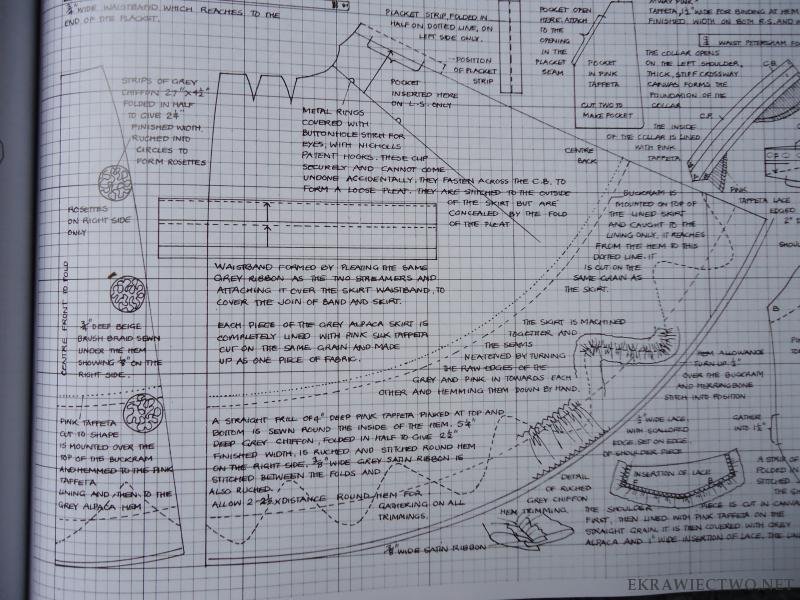 ¾" WIDE WAISTBAND WHICH REACHES TO THE
END OF THE PLACKET.
STRIPS OF GREY
CHIFFON 27" X 4½"
FOLDED IN HALF
TO GIVE 2¼"
FINISHED WIDTH,
RUCHED INTO
CIRCLES TO
FORM ROSETTES
ROSETTES
ON RIGHT SIDE
ONLY
CENTRE FRONT TO FOLD
¾" DEEP BEIGE
BRUSH BRAID SEWN
UNDER THE HEM
SHOWING ⅛" ON THE
RIGHT SIDE.
PINK TAFFETA
CUT TO SHAPE
IS MOUNTED OVER THE
TOP OF THE BUCKRAM
AND HEMMED TO THE PINK
TAFFETA
LINING AND THEN TO THE
GREY ALPACA HEM
PLACKET STRIP, FOLDED IN
HALF ON DOTTED LINE, ON
LEFT SIDE ONLY.
POSITION
OF PLACKET
STRIP
POCKET
INSERTED HERE
ON L.S. ONLY
METAL RINGS
COVERED WITH
BUTTONHOLE STITCH FOR
EYES, WITH NICHOLLS
PATENT HOOKS. THESE CLIP
SECURELY AND CANNOT COME
UNDONE ACCIDENTALLY, THEY FASTEN ACROSS THE C.B. TO
FORM A LOOSE PLEAT. THEY ARE STITCHED TO THE OUTSIDE
OF THE SKIRT BUT ARE
CONCEALED BY THE FOLD
OF THE PLEAT
WAISTBAND FORMED BY PLEATING THE SAME
GREY RIBBON AS THE TWO STREAMERS AND
ATTACHING IT OVER THE SKIRT WAISTBAND, TO
COVER THE JOIN OF BAND AND SKIRT.
EACH PIECE OF THE GREY ALPACA SKIRT IS
COMPLETELY LINED WITH PINK SILK TAFFETA
CUT ON THE SAME GRAIN AND MADE
UP AS ONE PIECE OF FABRIC.
A STRAIGHT FRILL OF 4" DEEP PINK TAFFETA PINKED AT TOP AND
BOTTOM IS SEWN ROUND THE INSIDE OF THE HEM. 5¼"
DEEP GREY CHIFFON, FOLDED IN HALF TO GIVE 2½"
FINISHED WIDTH, IS RUCHED AND STITCHED ROUND HEM
ON THE RIGHT SIDE. WIDE GREY SATIN RIBBON IS
STITCHED BETWEEN THE FOLDS AND
ALSO RUCHED.
ALLOW 2-2½ X DISTANCE ROUND HEM FOR
GATHERING ON ALL
TRIMMINGS.
WIDE SATIN RIBBON
POCKET OPEN
HERE. ATTACH
TO THE
OPENING
IN THE
PLACKET
SEAM
POCKET
IN PINK
TAFFETA
CUT TWO TO
MAKE POCKET
TAFFETA, 1½" WIDE FOR BINDING AT HEM
FINISHED WIDTH ON BOTH R.S. AND
WAIST PETERSHAM
THE COLLAR OPENS
ON THE LEFT SHOULDER.
THICK, STIFF CROSSWAY
CANVAS FORMS THE
FOUNDATION OF THE
COLLAR
C.B.
C.F.
THE INSIDE
OF THE COLLAR IS LINED
WITH PINK
TAFFETA
CENTRE
BACK
PINK
TAFFETA LACE
EDGED
BUCKRAM IS
MOUNTED ON TOP OF
THE LINED SKIRT
AND CAUGHT TO THE
LINING ONLY. IT REACHES
FROM THE HEM TO THIS
DOTTED LINE. IT
IS CUT ON THE
SAME GRAIN AS
THE SKIRT.
B
THE SKIRT IS MACHINED
TOGETHER AND
THE SEAMS
NEATENED BY TURNING
THE RAW EDGES OF THE
GREY AND PINK IN TOWARDS EACH
OTHER AND HEMMING THEM DOWN BY HAND.
HEM ALLOWANCE
TURN UP ½"
OVER THE BUCKRAM
AND HERRINGBONE
STITCH INTO POSITION
½" WIDE LACE
WITH SCALLOPED
EDGE, SET ON EDGE
OF SHOULDER PIECE
GATHER
INTO 1½"
INSERTION OF LACE
A STRIP OF
FOLDED IN
STITCHED
THE SH
DETAIL
OF RUCHED
GREY CHIFFON
HEM TRIMMING
THE SHOULDER PIECE IS CUT IN CANVAS
FIRST, THEN LINED WITH PINK TAFFETA ON THE
STRAIGHT GRAIN. IT IS THEN COVERED WITH GREY
ALPACA AND 1" WIDE INSERTION OF LACE. THE
EKRAWIECTWO.NET